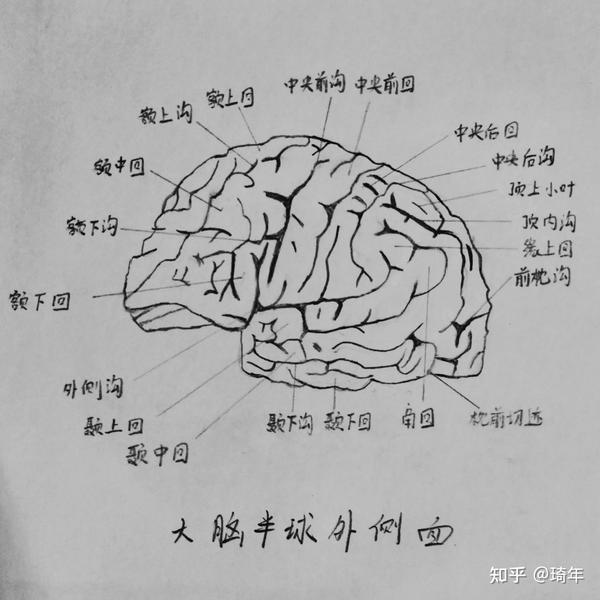 中央前沟 中央前回
额上回
额上沟
中央后回
中央后沟
额中回
顶上小叶
额下沟
顶内沟
缘上回
前枕沟
额下回
外侧沟
颞上回
颞下沟 颞下回 角回 枕前切迹
颞中回
大脑半球外侧面
知乎 @琦年